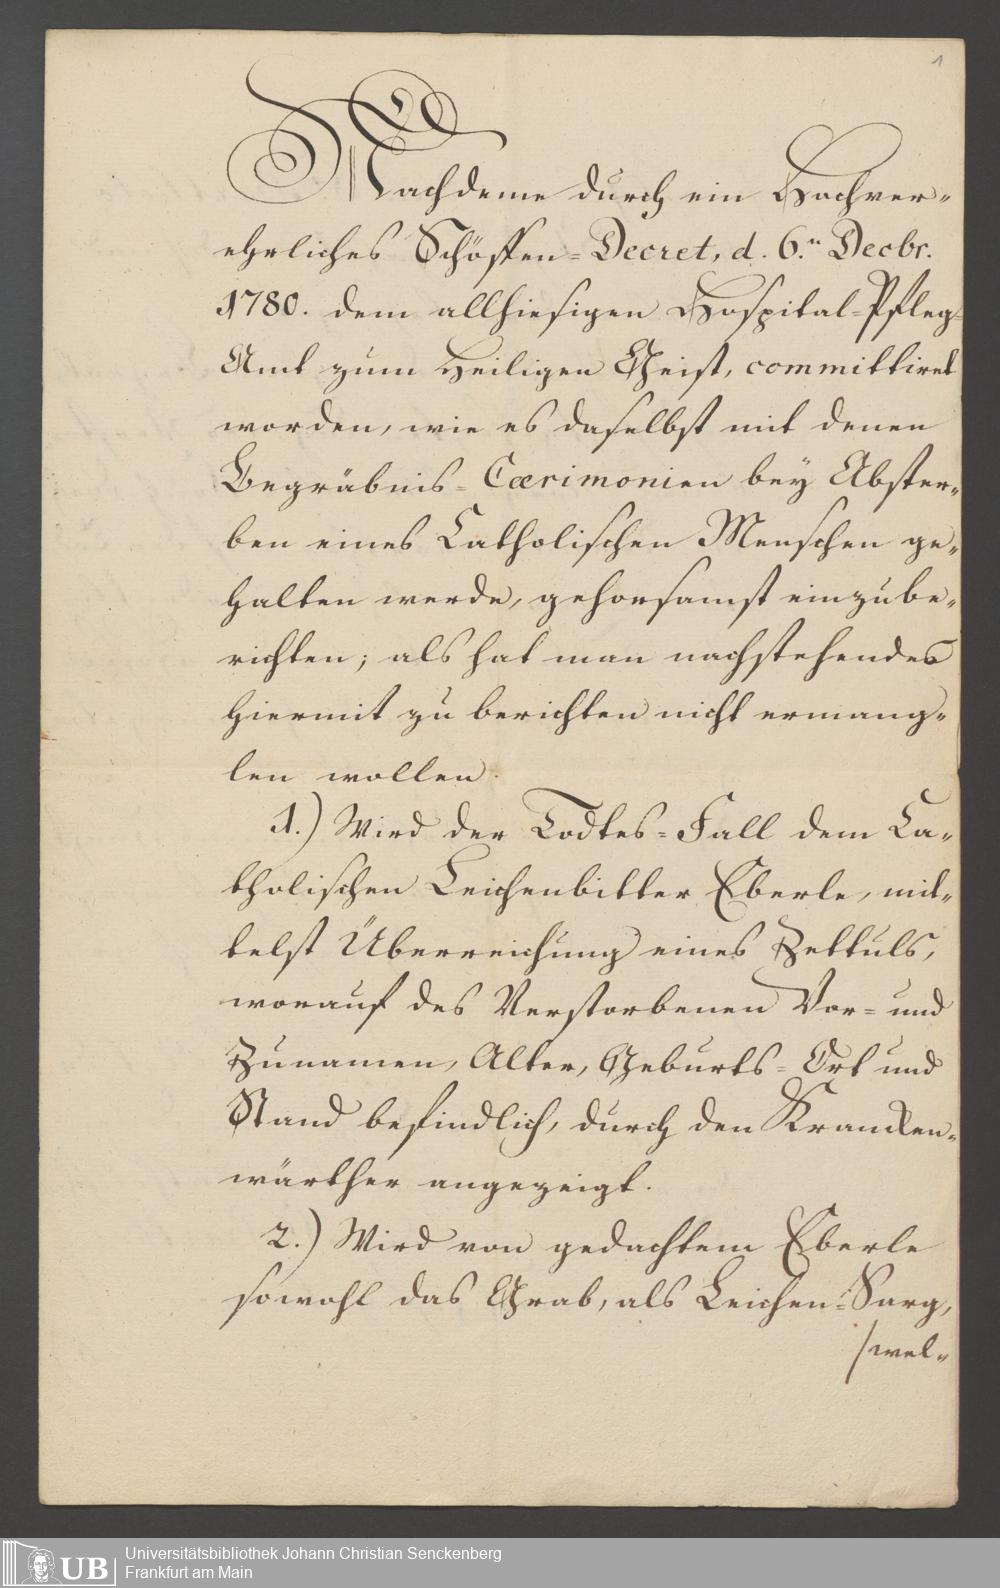 1
Nachdeme durch ein Hochver-
ehrliches Schöffen-Decret, d. 6.n Decbr.
1780. dem allhiesigen Hospital-Pfleg-
Amt zum Heiligen Geist, committiret
worden, wie es daselbst mit denen
Begräbnis-Cærimonien bey Abster-
ben eines Catholischen Menschen ge-
halten werde, gehorsamst einzube-
richten; als hat man nachstehendes
hiermit zu berichten nicht ermang-
len wollen.
1.) Wird der Todtes-Fall dem Ca-
tholischen Leichenbitter Eberle, mit-
telst Überreichung eines Zettuls,
worauf des Verstorbenen Vor- und
Zunamen, Alter, Geburts-Ort und
Stand befindlich, durch den Krancken-
wärther angezeigt.
2.) Wird von gedachtem Eberle
sowohl das Grab, als Leichen-Sarg,
/wel-
UB
Universitätsbibliothek Johann Christian Senckenberg
Frankfurt am Main